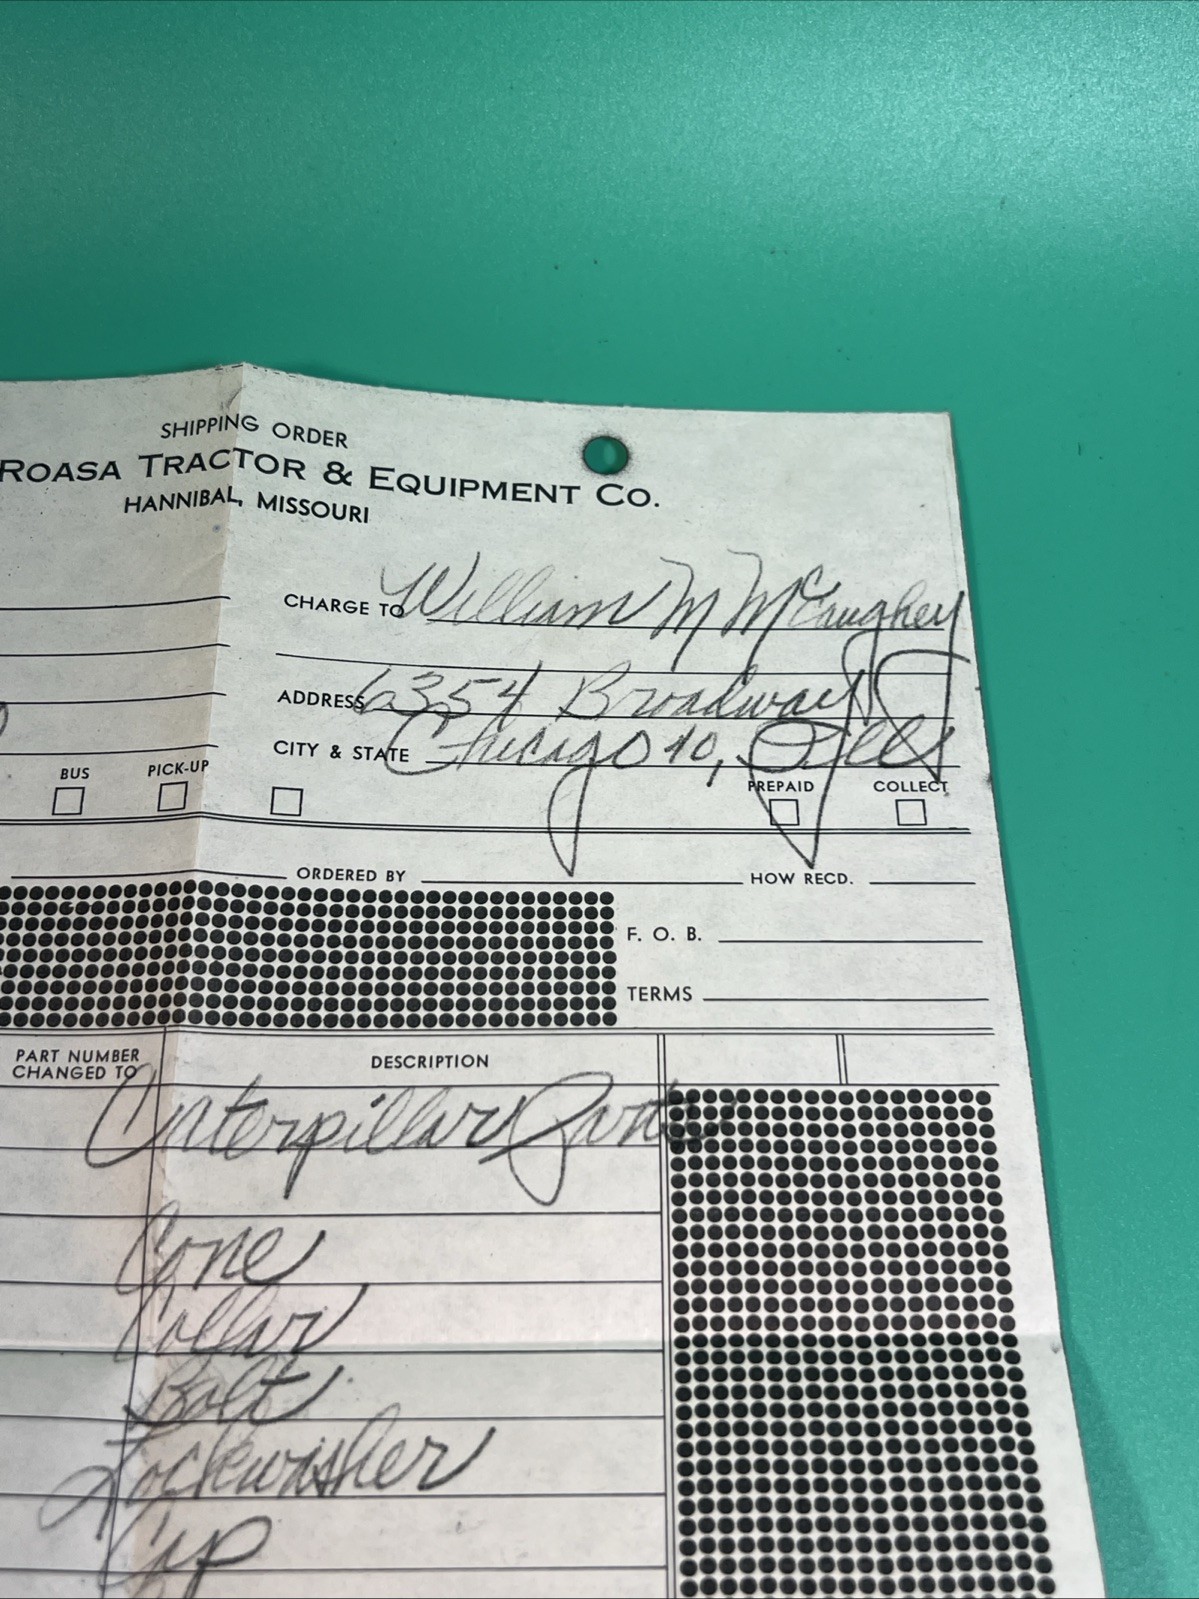 SHIPPING ORDER
ROASA TRACTOR & EQUIPMENT CO.
HANNIBAL, MISSOURI
CHARGE TO William M McCaughey
ADDRESS 6354 Broadway
CITY & STATE Chicago 40, Ills
BUS PICK-UP PREPAID COLLECT
ORDERED BY HOW RECD.
F. O. B.
TERMS
PART NUMBER CHANGED TO DESCRIPTION
Caterpillar Parts
Cone
Collar
Bolt
Lockwasher